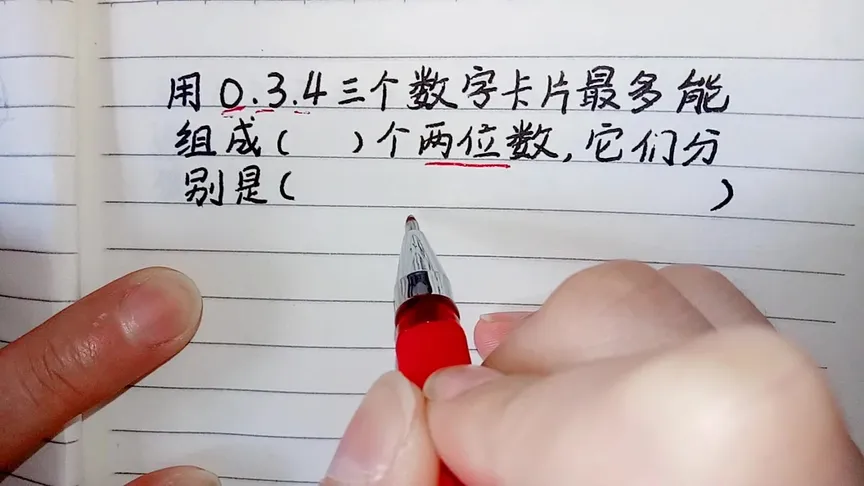 用0.3.4三个数字卡片最多能
组成(　)个两位数,它们分
别是(　　　　　　　)